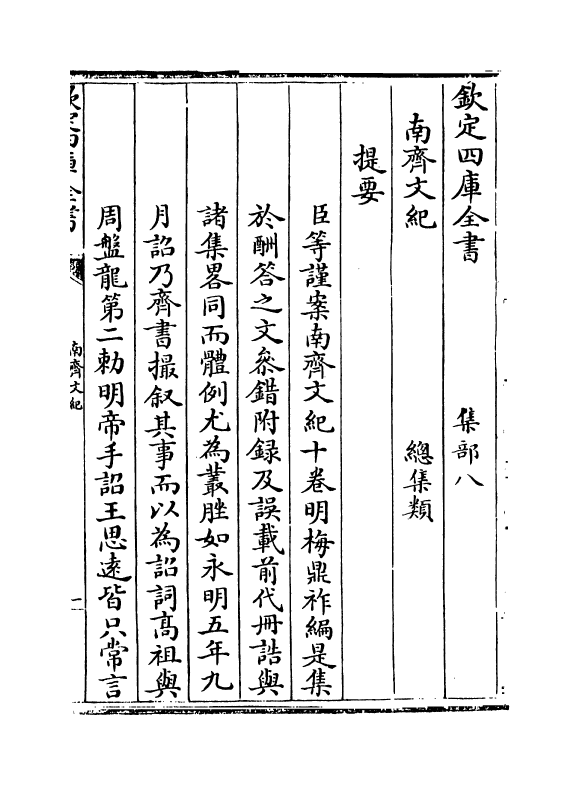 欽定四庫全書　集部八
南齊文紀　總集類
提要
臣等謹案南齊文紀十卷明梅鼎祚編是集
於酬答之文叅錯附録及誤載前代冊誥與
諸集畧同而體例尤為叢脞如永明五年九
月詔乃齊書撮叙其事而以為詔詞髙祖與
周盤龍第二勅明帝手詔王思逺皆只常言
欽定四庫全書
南齊文紀
一